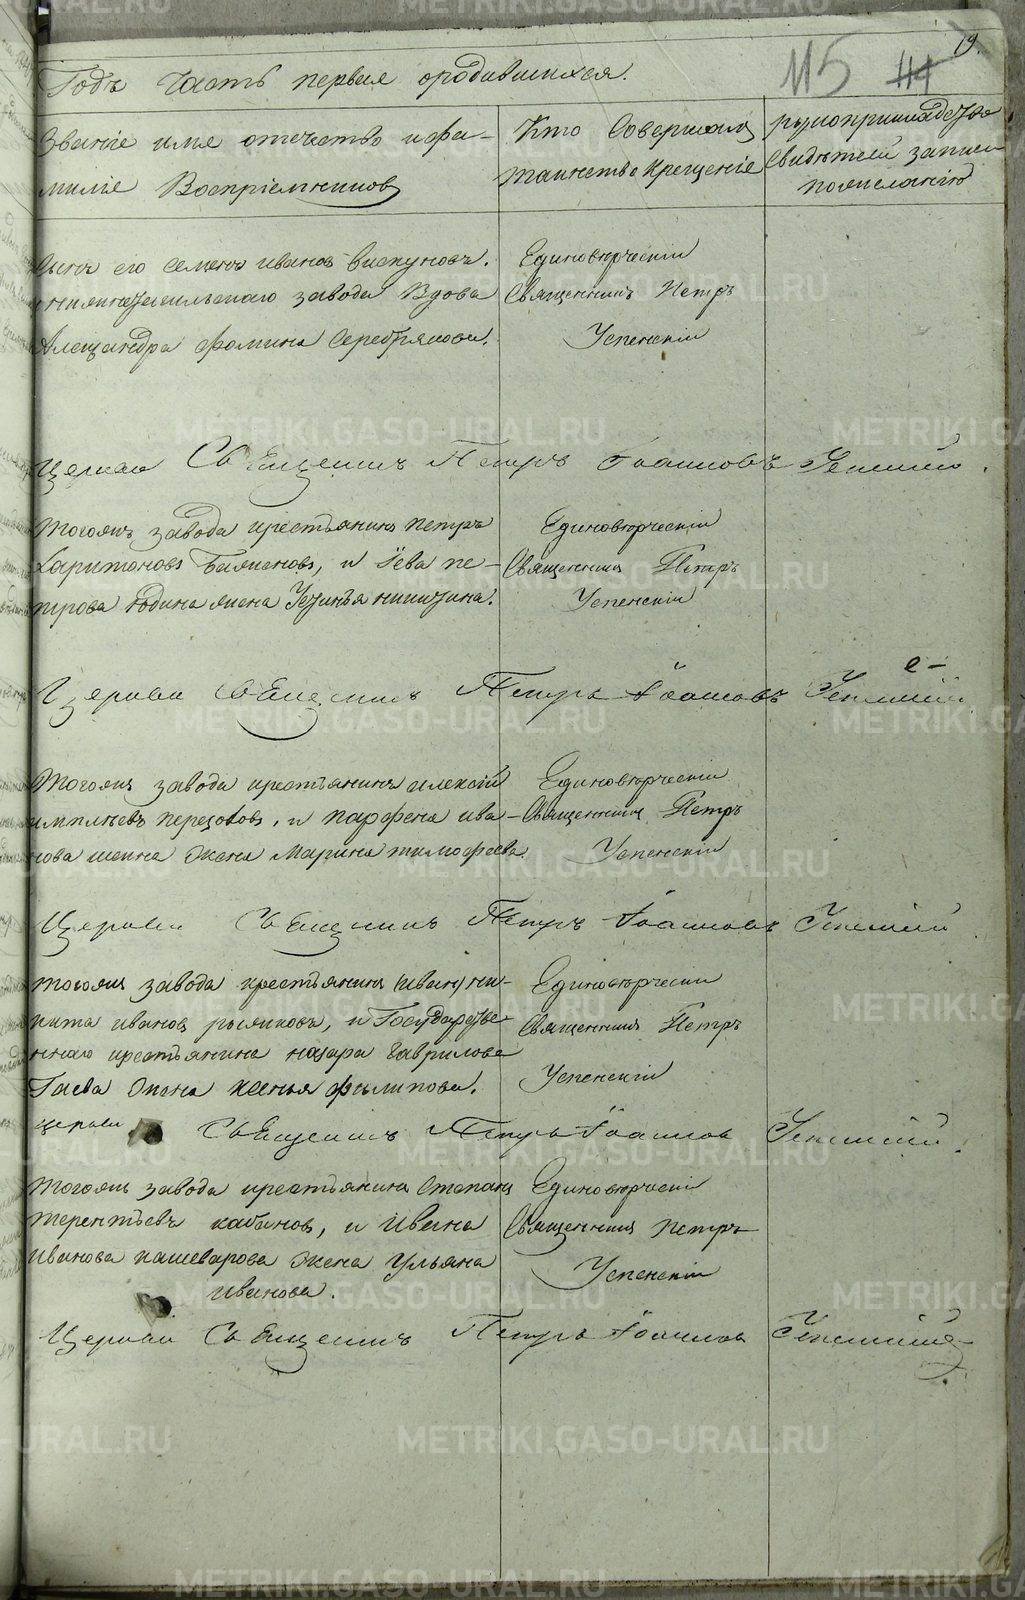 19.
115
Годъ Часть первая ородившихся.
Званіе имя отечество ифа-
миліе Воспріемниковъ
Кто Совершалъ
таинство Крещеніе
рукоприкладство
Свидѣтелей записи
пожеланію
Сынъ его Семенъ Ивановъ
завода Вдова
Александра Фомина Серебрякова.
Единовѣрческій
Священникъ Петръ
Успенскій
Церкви Священникъ Петръ Іоанновъ Успенскій.
Тогожъ завода крестьянинъ Петръ
Харитоновъ и Іева пе-
трова Юдина жена Устинья никитина.
Единовѣрческій
Священникъ Петръ
Успенскій
Церкви Священникъ Петръ Іоанновъ Успенскій
Тогожъ завода крестьянинъ алексій
и парфена ива-
нова жена Марина тимофеева.
Единовѣрческій
Священникъ Петръ
Успенскій
Церкви Священникъ Петръ Іоанновъ Успенскій
тогожъ завода крестьянинъ (иванъ) ни-
кита ивановъ и Государстве-
ннаго крестьянина назара Гаврилова
Гаева жена Ксенья филипова.
Единовѣрчески
Священникъ Петръ
Успенскій
церкви Священникъ Петръ Іоанновъ Успенскій.
Тогожъ завода крестьянинъ Степанъ
терентьевъ кабановъ, и Ивана
Иванова кашеварова жена Ульяна
иванова.
Единовѣрческій
Священникъ Петръ
Успенскій
Церкви Священникъ Петръ Іоанновъ Успенскій
METRIKI.GASO-URAL.RU